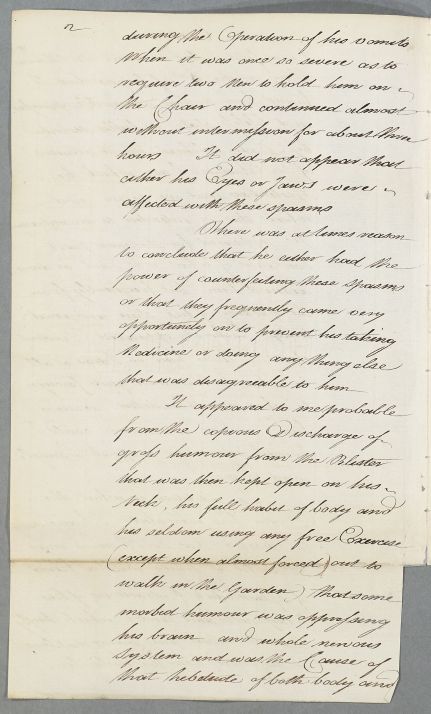 2
during the Operation of his vomits
when it was once so severe as to
require two Men to hold him on
the Chair and continued almost
without intermission for about three
hours It did not appear that
either his Eyes or Jaws were
affected with these spasms
There was at times reason
to conclude that he either had the
power of counterfeiting these spasms
or that they frequently came very
opportunely on to prevent his taking
Medicine or doing any thing else
that was disagreeable to him
It appeared to me probable
from the copious Discharge of
gross humour from the Blister
that was then kept open on his
Neck, his full habit of body and
his seldom using any free Exercise
(except when almost forced out to
walk in the Garden) that some
morbid humour was oppressing
his brain and whole nervous
System and was the Cause of
that hebetude of both body and